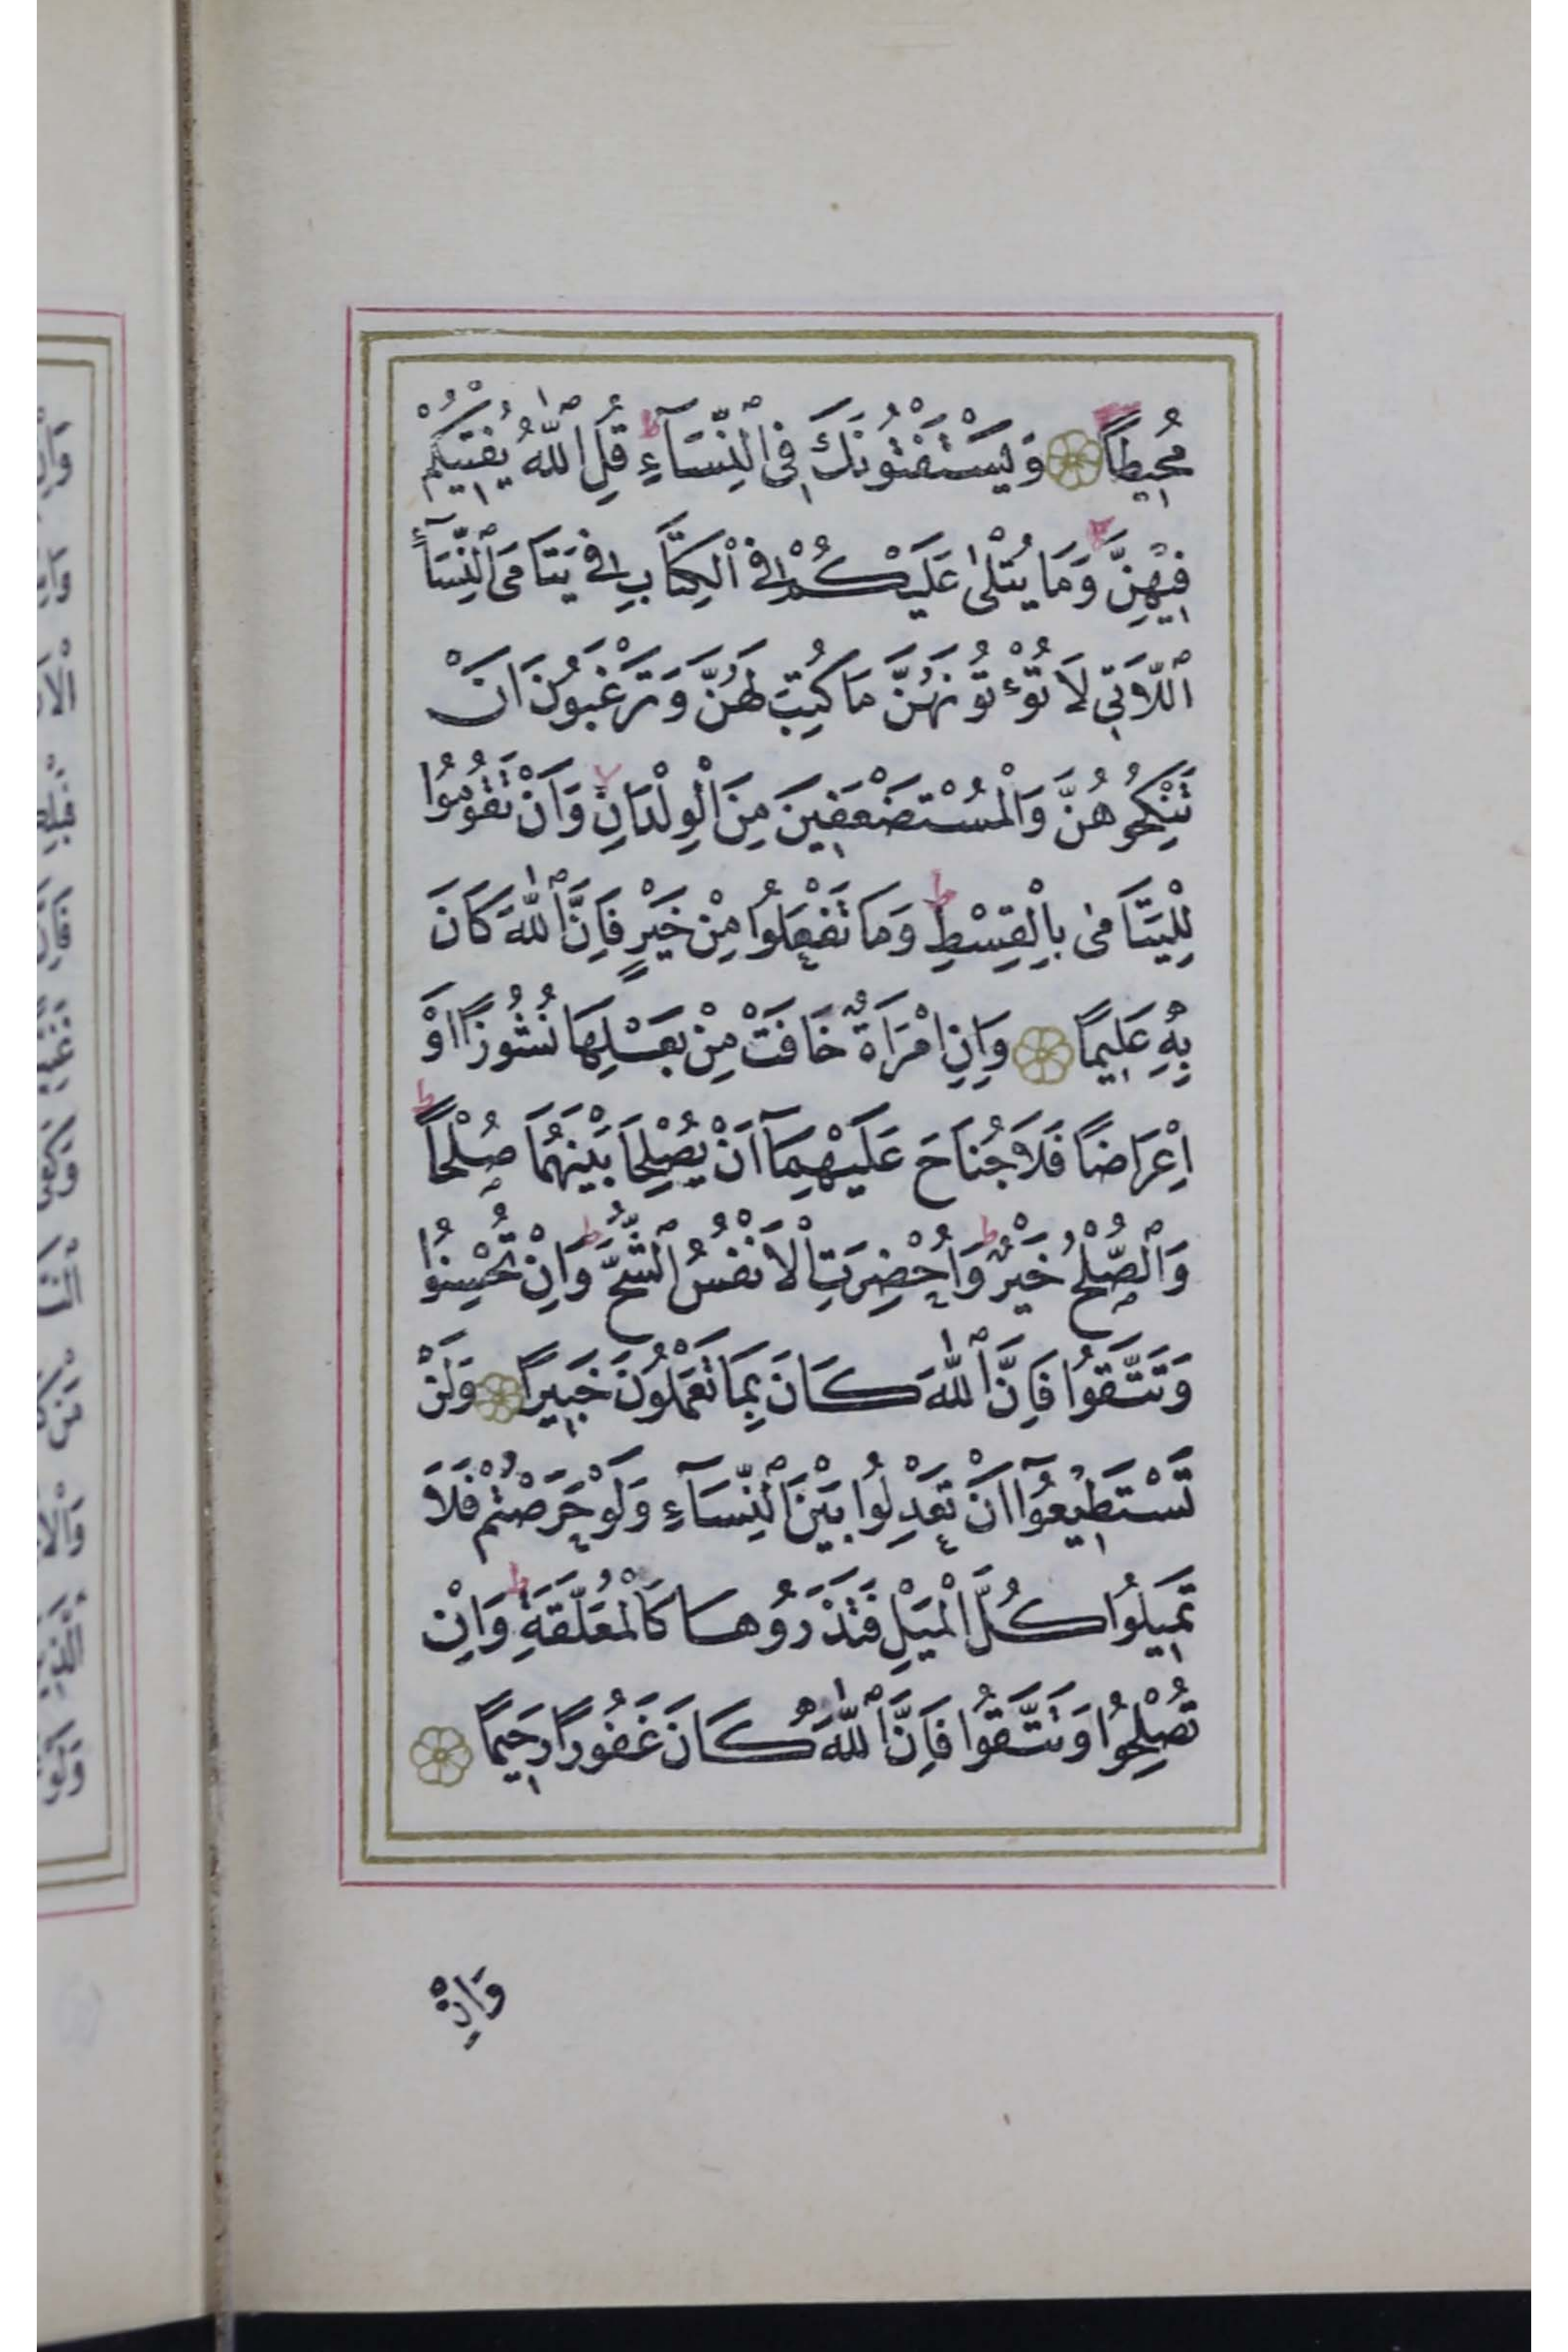 مُحِيطًا ۝ وَيَسْتَفْتُونَكَ فِى ٱلنِّسَآءِ ط قُلِ ٱللّٰهُ يُفْتِيكُمْ
فِيهِنَّ لا وَمَا يُتْلٰى عَلَيْكُمْ فِى ٱلْكِتَابِ فِى يَتَامَى ٱلنِّسَآءِ
ٱللَّاتِى لَا تُؤْتُونَهُنَّ مَا كُتِبَ لَهُنَّ وَتَرْغَبُونَ اَنْ
تَنْكِحُوهُنَّ وَالْمُسْتَضْعَفِينَ مِنَ الْوِلْدَانِ لا وَاَنْ تَقُومُوا
لِلْيَتَامٰى بِالْقِسْطِ ط وَمَا تَفْعَلُوا مِنْ خَيْرٍ فَاِنَّ ٱللّٰهَ كَانَ
بِهِ عَلِيمًا ۝ وَاِنِ امْرَاَةٌ خَافَتْ مِنْ بَعْلِهَا نُشُوزًا اَوْ
اِعْرَاضًا فَلَا جُنَاحَ عَلَيْهِمَآ اَنْ يُصْلِحَا بَيْنَهُمَا صُلْحًا ط
وَٱلصُّلْحُ خَيْرٌ ط وَاُحْضِرَتِ الْاَنْفُسُ ٱلشُّحَّ ط وَاِنْ تُحْسِنُوا
وَتَتَّقُوا فَاِنَّ ٱللّٰهَ كَانَ بِمَا تَعْمَلُونَ خَبِيرًا ۝ وَلَنْ
تَسْتَطِيعُوٓا اَنْ تَعْدِلُوا بَيْنَ ٱلنِّسَآءِ وَلَوْ حَرَصْتُمْ فَلَا
تَمِيلُوا كُلَّ الْمَيْلِ فَتَذَرُوهَا كَالْمُعَلَّقَةِ ط وَاِنْ
تُصْلِحُوا وَتَتَّقُوا فَاِنَّ ٱللّٰهَ كَانَ غَفُورًا رَحِيمًا ۝
وَاِنْ